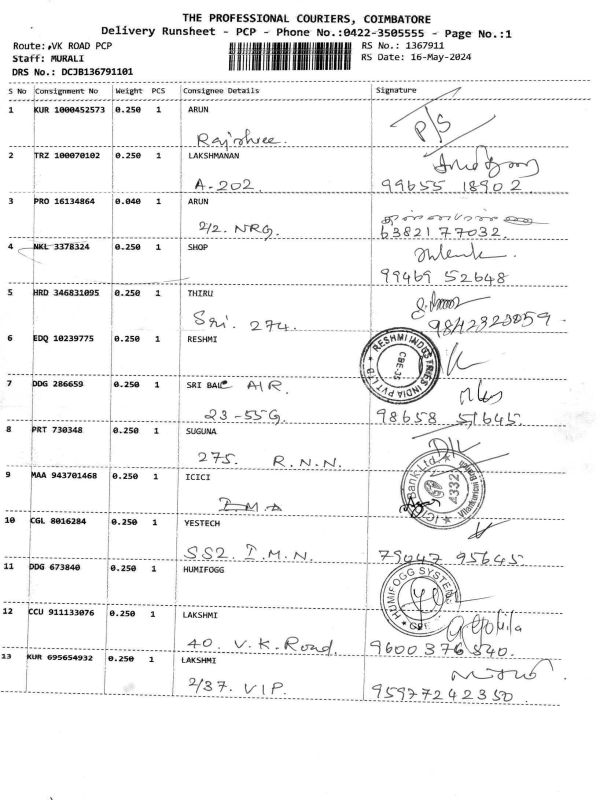 THE PROFESSIONAL COURIERS, COIMBATORE
Delivery Runsheet - PCP - Phone No.:0422-3505555 - Page No.:1
Route: VK ROAD PCP RS No.: 1367911
Staff: MURALI RS Date: 16-May-2024
DRS No.: DCJB136791101
S No Consignment No Weight PCS Consignee Details Signature
1 KUR 1000452573 0.250 1 ARUN
Rajshree. P/S
2 TRZ 100070102 0.250 1 LAKSHMANAN
A-202. 99655 18902
3 PRO 16134864 0.040 1 ARUN
2/2. NRG. 63821 77032.
4 NKL 3378324 0.250 1 SHOP
99469 52648
5 HRD 346831095 0.250 1 THIRU
Sri. 274. 9842323059
6 EDQ 10239775 0.250 1 RESHMI
RESHMI INDUSTRIES INDIA PVT LTD
CBE-35
7 DDG 286659 0.250 1 SRI BALC AIR.
23-55G. 98658 51645.
8 PRT 730348 0.250 1 SUGUNA
275. R.N.N.
9 MAA 943701468 0.250 1 ICICI
ICICI Bank Ltd. 4332
10 CGL 8016284 0.250 1 YESTECH
SS2. I.M.N. 79047 95645.
11 DDG 673840 0.250 1 HUMIFOGG
HUMIFOGG SYSTEMS
12 CCU 911133076 0.250 1 LAKSHMI
40. V.K. Road. 9600376540.
13 KUR 695654932 0.250 1 LAKSHMI
2/37. VIP. 95977242350.